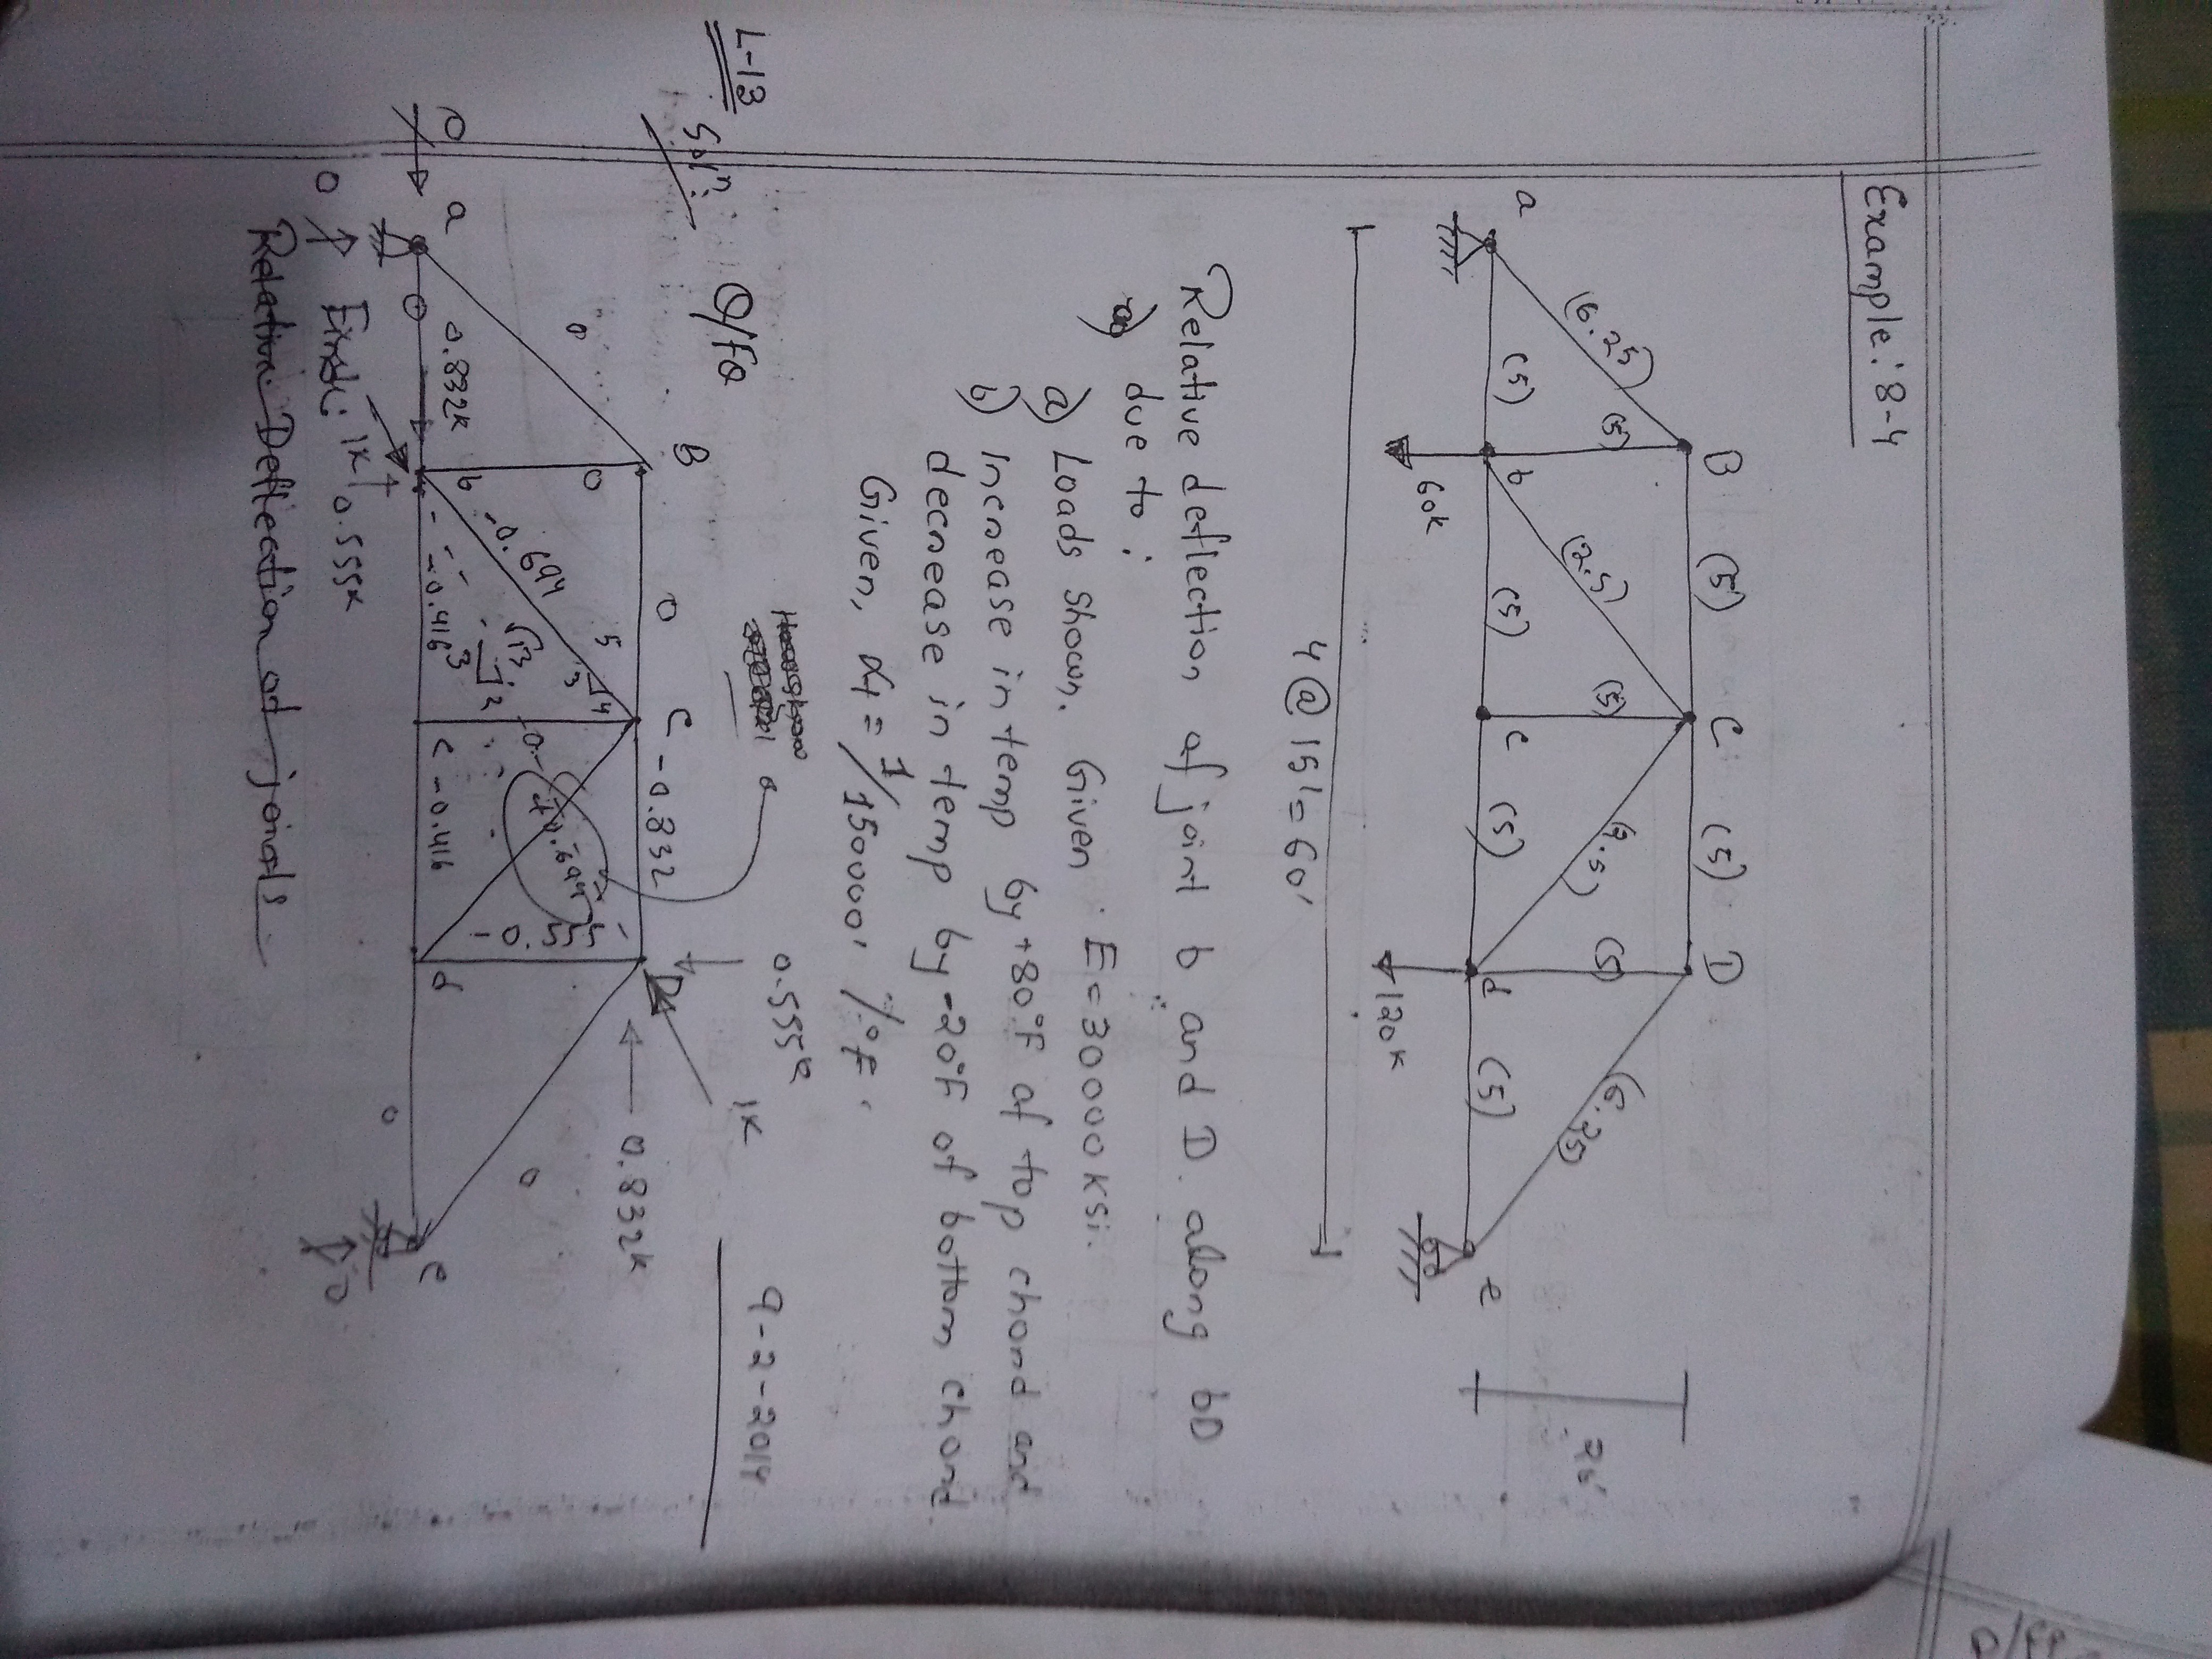 Example: 8-4
B (5) C (5) D
(6.25) (5) (2.5) (5) (2.5) (5) (6.25)
a (5) b (5) c (5) d (5) e
60k 120k
4 @ 15' = 60'
Relative deflection of joint b and D along bD
due to:
a) Loads shown. Given E = 30000 ksi.
b) Increase in temp by +80°F of top chord and
decrease in temp by -20°F of bottom chord
Given, αt = 1/150000 /°F.
9-2-2014
L-13
Solⁿ: Q/FQ
0.555k 1K
B 0 C -0.832 D 0.832k
0 0 -0.694 5 4 3 0 +0.694 -0.555 0
√13 2 3
0 a 0.832k b -0.416 c -0.416 d 0 e
0 First: 1K 0.555k 0
Relative Deflection of joints